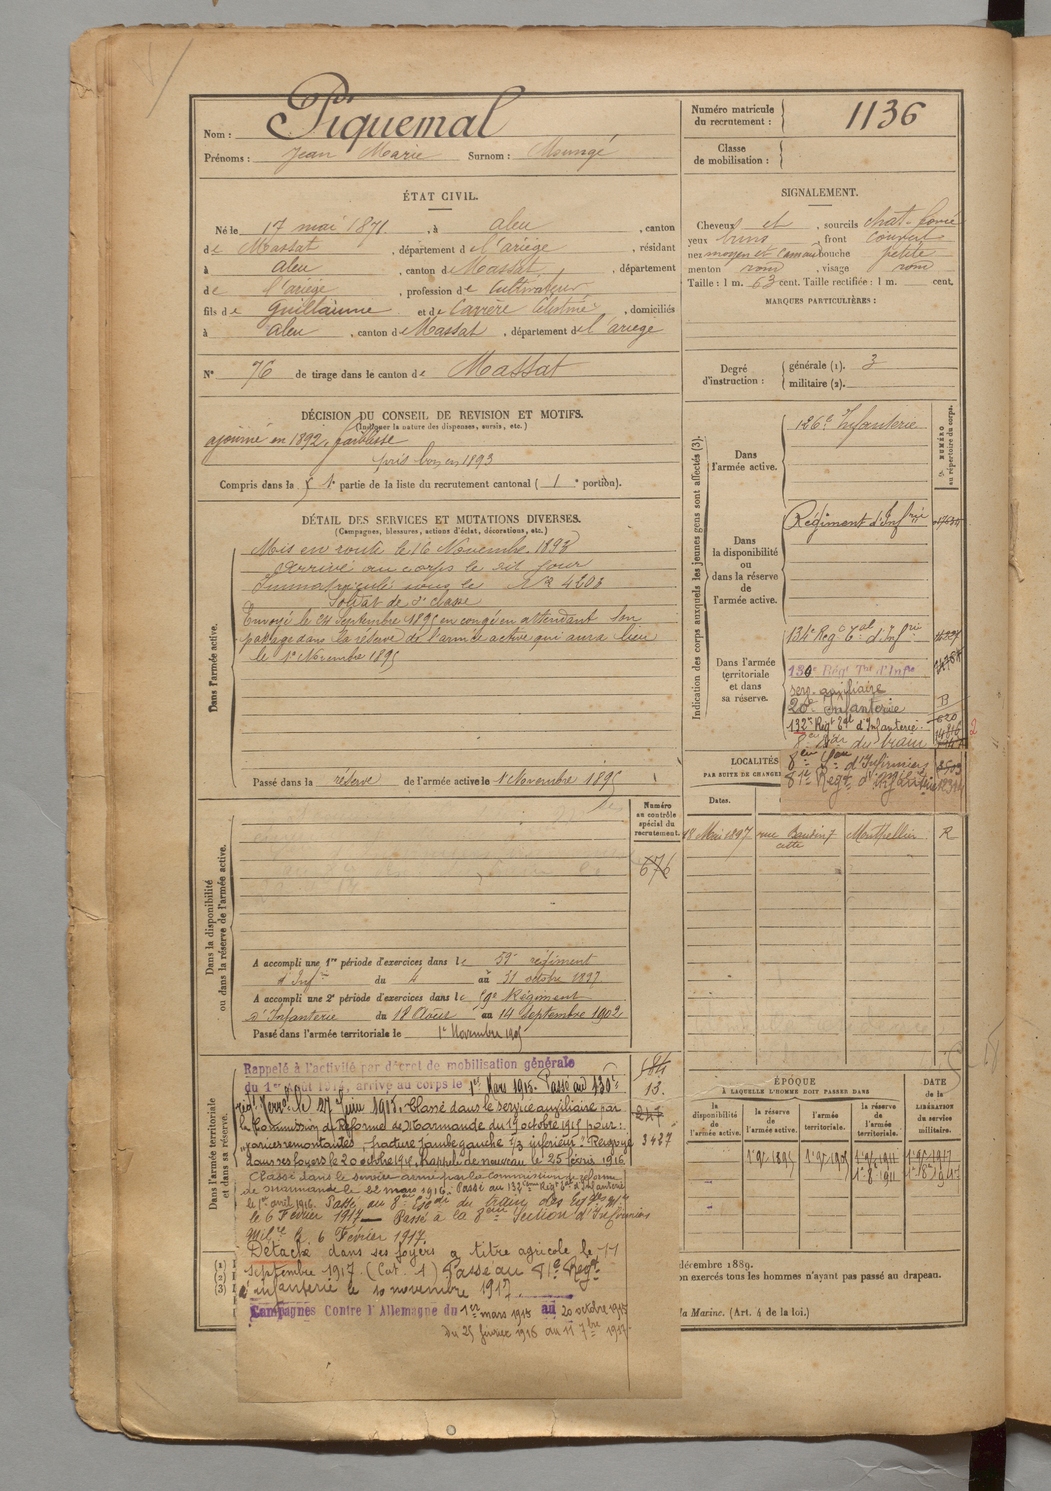 Nom : Piquemal
Prénoms : Jean Marie Surnom : Moungé
Numéro matricule du recrutement : 1136
Classe de mobilisation :
ÉTAT CIVIL.
Né le 17 mai 1871, à Aleu, canton
de Massat, département de l'ariège, résidant
à Aleu, canton de Massat, département
de l'ariège, profession de Cultivateur
fils de Guillaume et de Carrère Célestine, domiciliés
à Aleu, canton de Massat, département de l'ariège
N° 76 de tirage dans le canton de Massat
SIGNALEMENT.
Cheveux et sourcils chat-
yeux bruns, front couvert
nez moyen et bouche petite
menton rond, visage rond
Taille : 1 m. 63 cent. Taille rectifiée : 1 m. cent.
MARQUES PARTICULIÈRES :
Degré d'instruction : générale (1). 3
militaire (2).
DÉCISION DU CONSEIL DE REVISION ET MOTIFS.
(Indiquer la nature des dispenses, sursis, etc.)
ajourné en 1892, faiblesse
pris bon en 1893
Compris dans la 1e partie de la liste du recrutement cantonal ( 1e portion).
DÉTAIL DES SERVICES ET MUTATIONS DIVERSES.
(Campagnes, blessures, actions d'éclat, décorations, etc.)
Dans l'armée active.
Mis en route le 16 Novembre 1893
Arrivé au corps le dit jour
Immatriculé sous le N° 4203
Soldat de 2e classe
Envoyé le 24 Septembre 1895 en congé en attendant son
passage dans la réserve de l'armée active qui aura lieu
le 1er Novembre 1895
Passé dans la réserve de l'armée active le 1 Novembre 1895
Indication des corps auxquels les jeunes gens sont affectés (3).
NUMÉRO au répertoire du corps.
Dans l'armée active.
126e Infanterie
Dans la disponibilité ou dans la réserve de l'armée active.
Régiment d'Infrie
Dans l'armée territoriale et dans sa réserve.
134e Reg. Tal d'Infrie
130e Régt Tal d'Infie
serv. auxiliaire
20e Infanterie
132e Régt Tal d'Infanterie
8e Esdr du train
8eme Son d'Infirmiers
81e Regt d'Infanterie
LOCALITÉS
PAR SUITE DE CHANGE
Dates.
18 Mai 1897 rue Baudin 7 Cette Montpellier R
Dans la disponibilité ou dans la réserve de l'armée active.
Numéro au contrôle spécial du recrutement.
676
A accompli une 1re période d'exercices dans le 59e régiment
d'Infie du 4 au 31 octobre 1897
A accompli une 2e période d'exercices dans le 59e Régiment
d'Infanterie du 18 Août au 14 Septembre 1902
Passé dans l'armée territoriale le 1er Novembre 1905
Dans l'armée territoriale et dans sa réserve.
Rappelé à l'activité par décret de mobilisation générale
du 1er Août 1914, arrivé au corps le 1er Mars 1915. Passé au 130e
régt Terral le 27 Juin 1915. Classé dans le service auxiliaire par
la Commission de Réforme de Marmande du 19 octobre 1915 pour :
"varices remontantes, fracture jambe gauche 1/3 inférieur". Renvoyé
dans ses foyers le 20 octobre 1915. Rappelé de nouveau le 25 février 1916.
Classé dans le service armé par la Commission de réforme
de Marmande le 22 mars 1916. Passé au 132eme Régt Tal d'Infanterie
le 1er avril 1916. Passé au 8eme Esdr du train des Eqges Mres
le 6 Février 1917 — Passé à la 8eme Section d'Infirmiers
Milres le 6 Février 1917.
Détaché dans ses foyers à titre agricole le 11
septembre 1917. (Cat. 1) Passé au 81e Régt
d'infanterie le 10 novembre 1917
Campagnes Contre l'Allemagne du 1er mars 1915 au 20 octobre 1915
du 25 février 1916 au 11 7bre 1917
584
13.
247
3427
ÉPOQUE
À LAQUELLE L'HOMME DOIT PASSER DANS
la disponibilité de l'armée active.
la réserve de l'armée active.
l'armée territoriale.
la réserve de l'armée territoriale.
DATE de la LIBÉRATION du service militaire.
1er 9bre 1895 1er 9bre 1905 1er 9bre 1911 1er 9bre 1917
(1)
(2)
(3)
décembre 1889.
on exercés tous les hommes n'ayant pas passé au drapeau.
la Marine. (Art. 4 de la loi.)